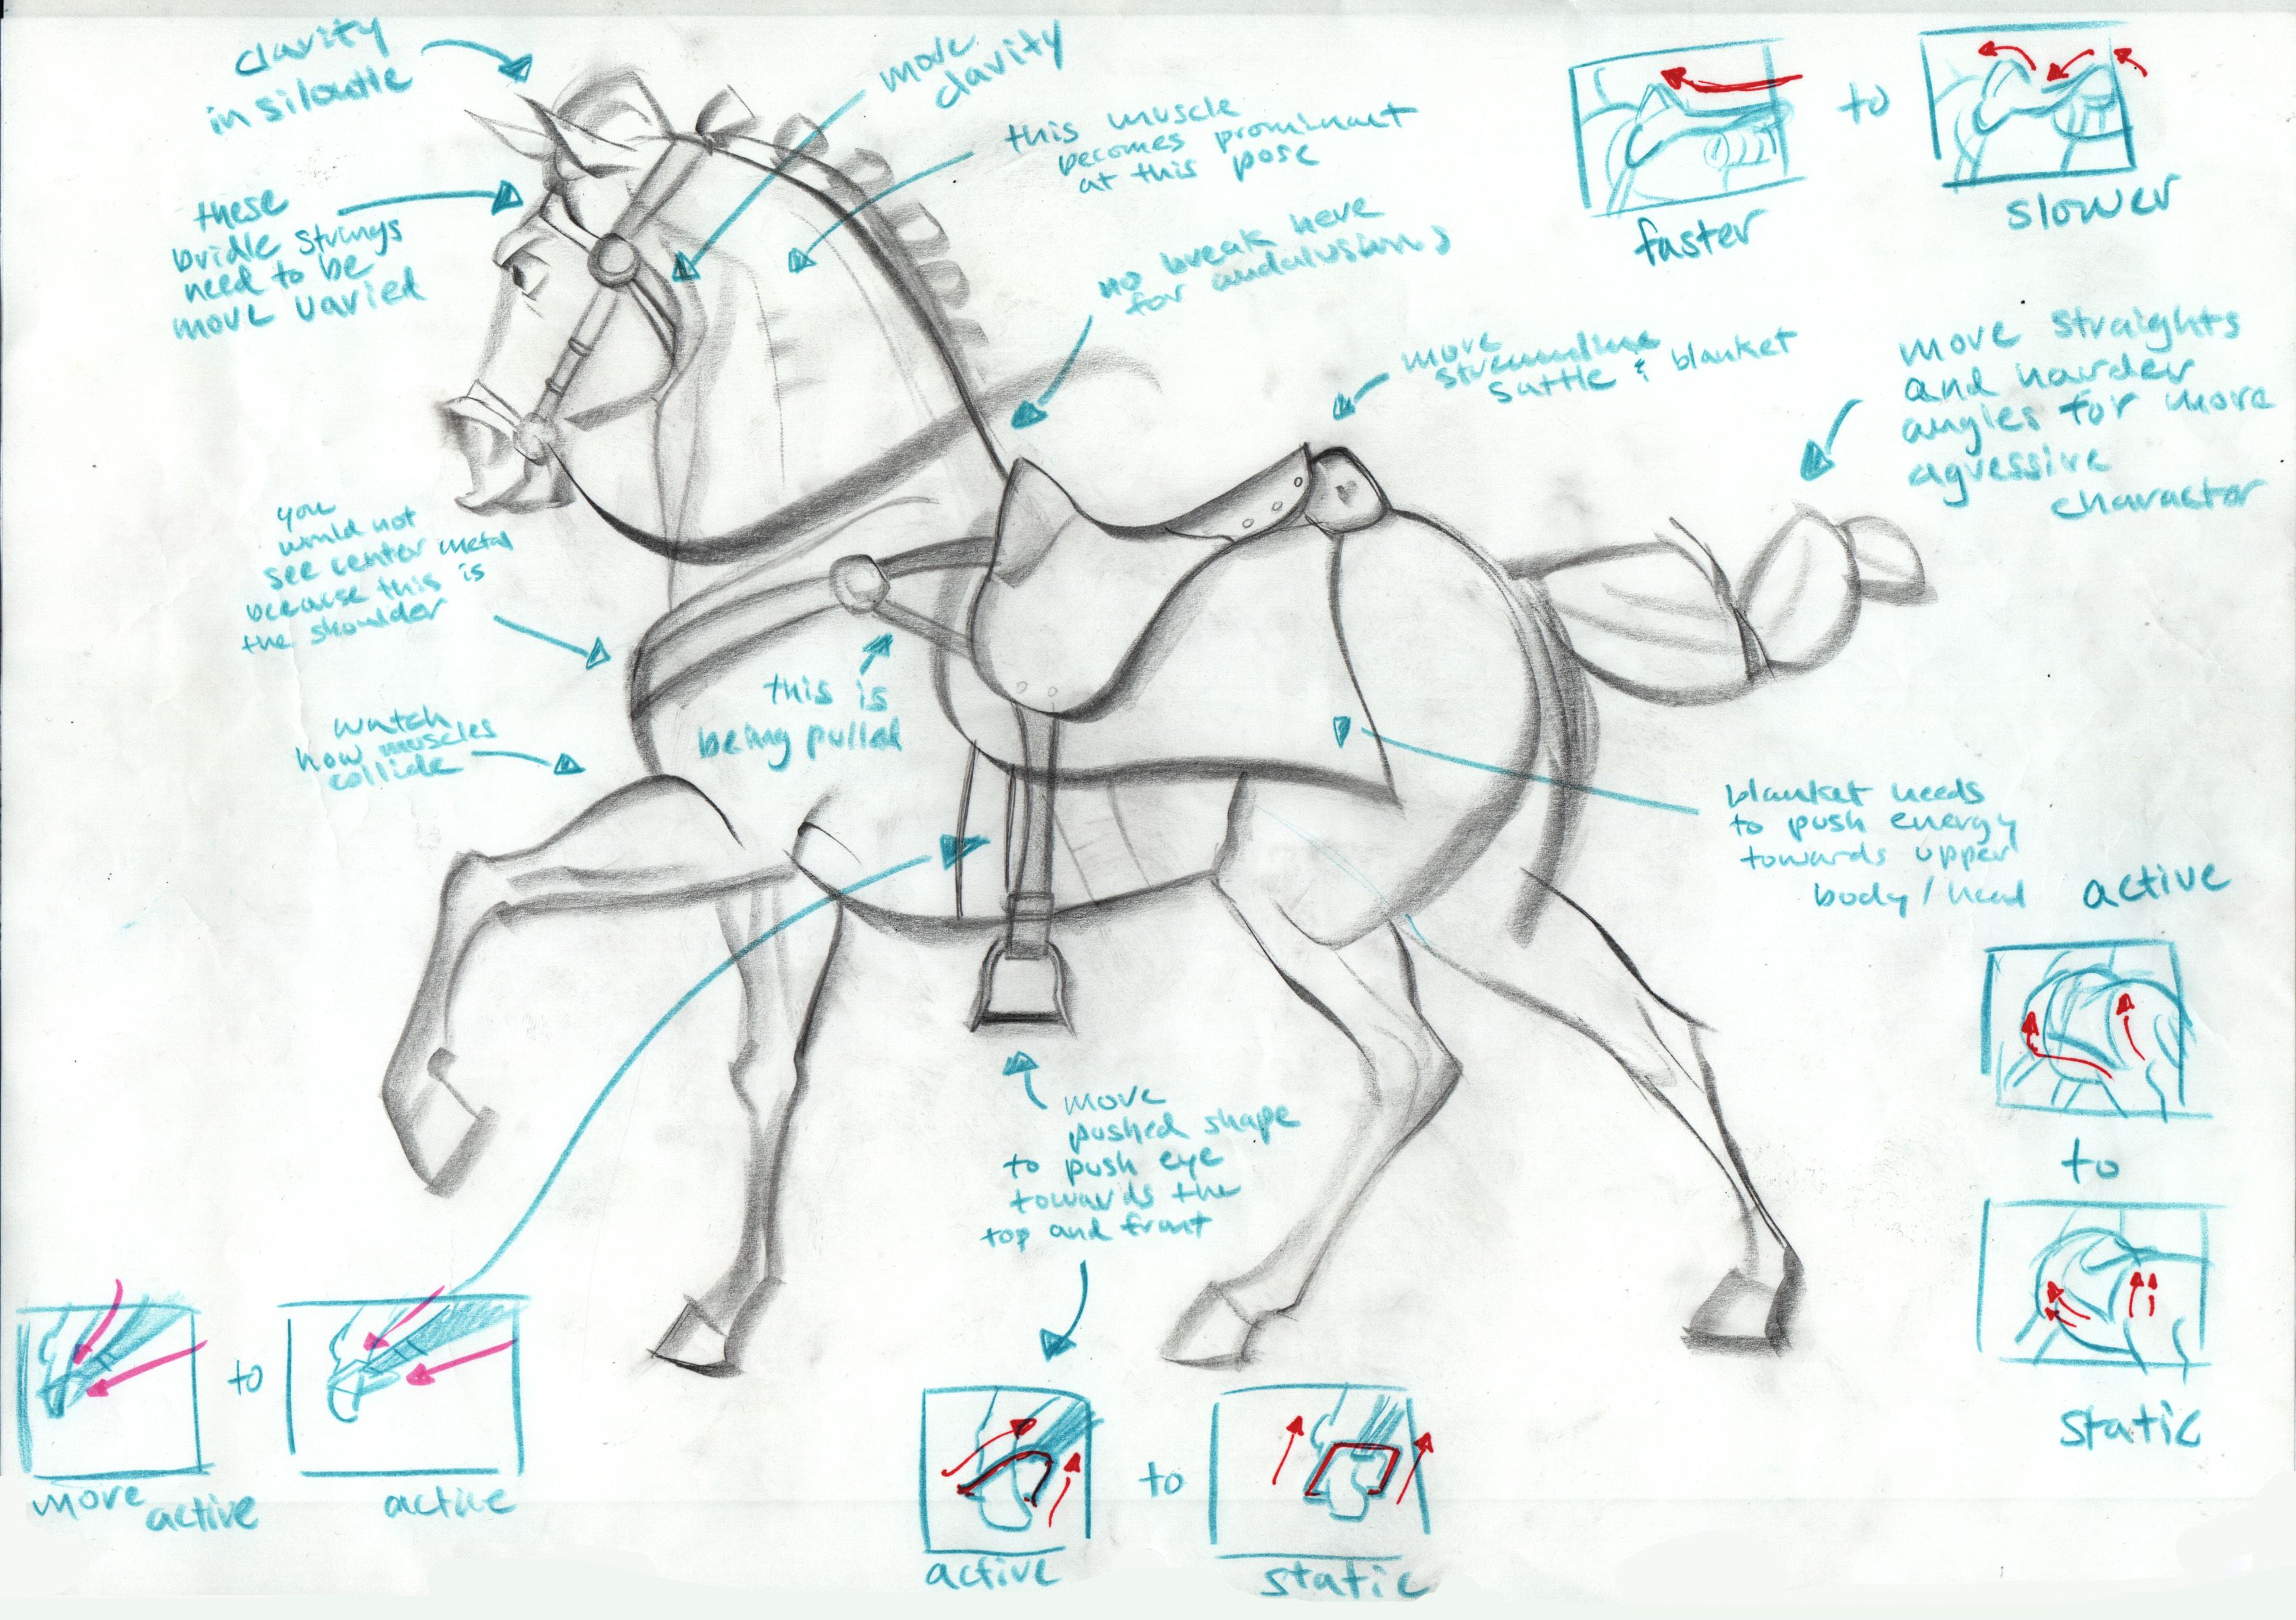 clarity
in siloutte
more
clarity
this muscle
becomes prominant
at this pose
to
faster
slower
these
bridle strings
need to be
more varied
no break here
for andalusians
more
streamline
sattle & blanket
more straights
and harder
angles for more
agressive
charactor
you
would not
see center metal
because this is
the shoulder
this is
being pulled
watch
how muscles
collide
blanket needs
to push energy
towards upper
body / head
active
to
static
more
pushed shape
to push eye
towards the
top and front
to
more active
active
to
active
static